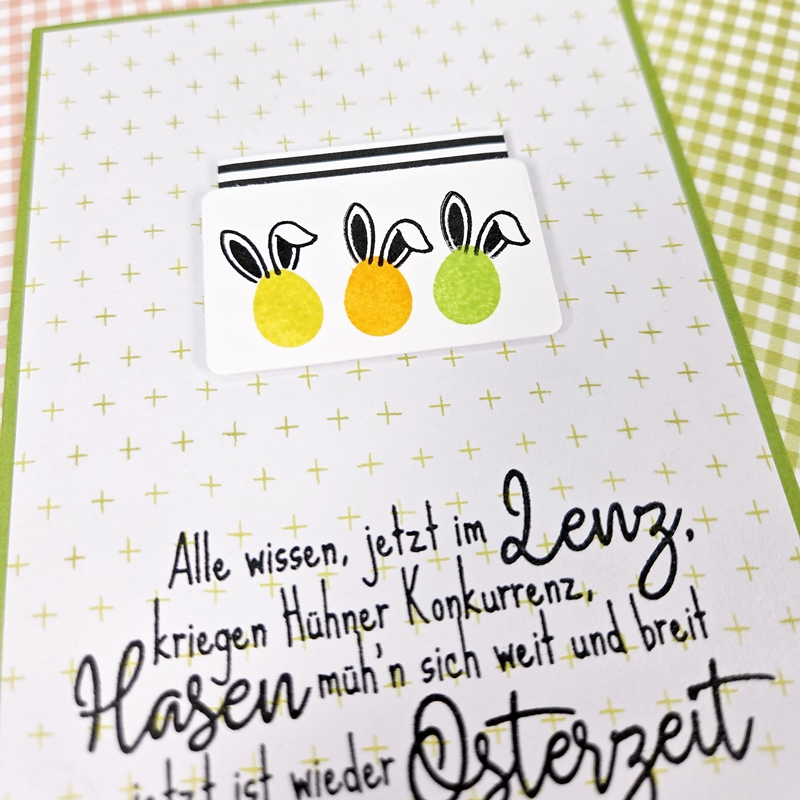 Alle wissen, jetzt im Lenz,
kriegen Hühner Konkurrenz,
Hasen müh'n sich weit und breit
jetzt ist wieder Osterzeit